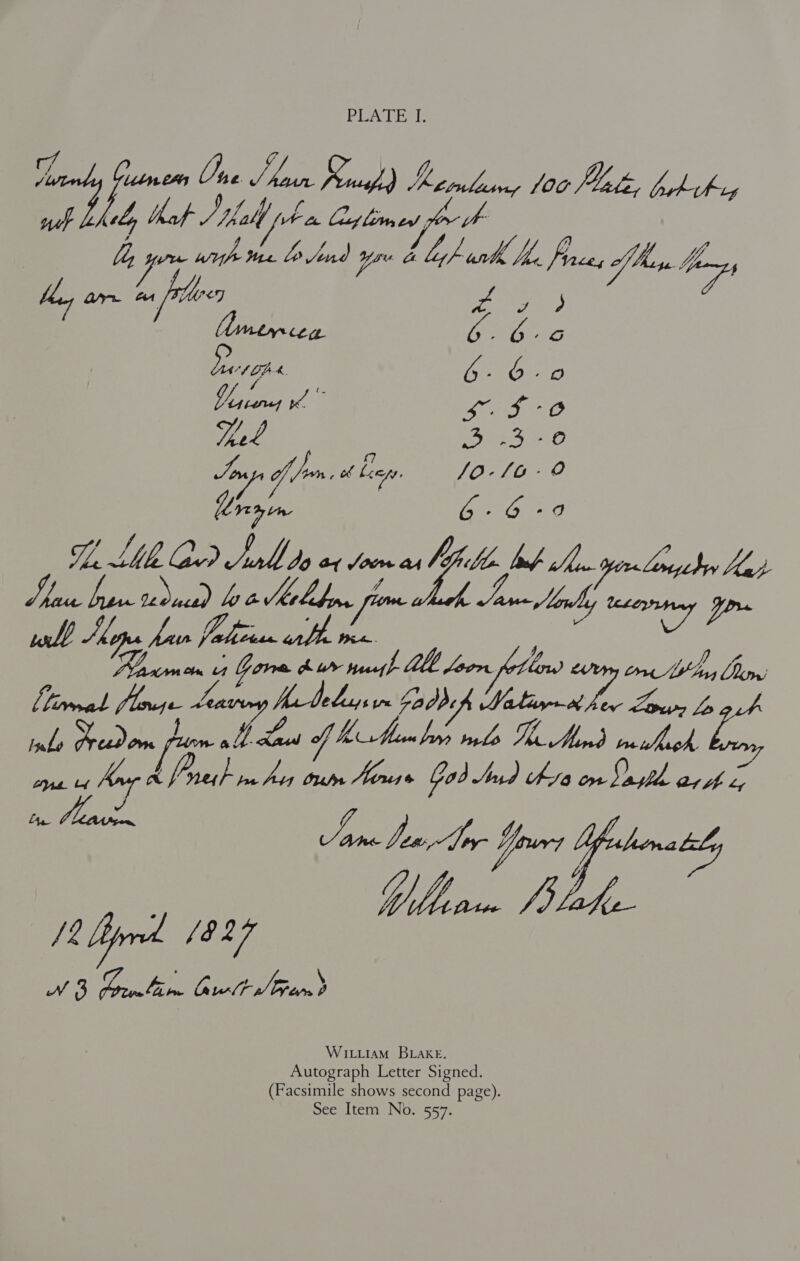 PLATE I.
Twenty Guineas One I have Finishd) It contains 100 Plates but it is
not likely that I shall get a Customer for it
As you wish me to send you a list with the Prices of these things
they are as follows
£ s d
America 6. 6. 0
Europe 6. 6. 0
Visions &c 5. 5. 0
Thel 3. 3. 0
Songs of Inn. & Exp. 10. 10. 0
Urizen 6. 6. 0
The Little Card I will do as soon as Possible but when you Consider that I
have been reduced to a Skeleton from which I am slowly recovering you
will I hope have Patience with me.
Flaxman is Gone & we must All soon follow every one to his Own
Eternal House Leaving the Delusive Goddess Nature & her Laws to get
into Freedom from all Law of the Members into The Mind in which every
one is King & Priest in his own House God Send it so on Earth as it is
in Heaven
I am Dear Sir Yours Affectionately
William Blake
12 April 1827
N 3 Fountain Court Strand
WILLIAM BLAKE.
Autograph Letter Signed.
(Facsimile shows second page).
See Item No. 557.